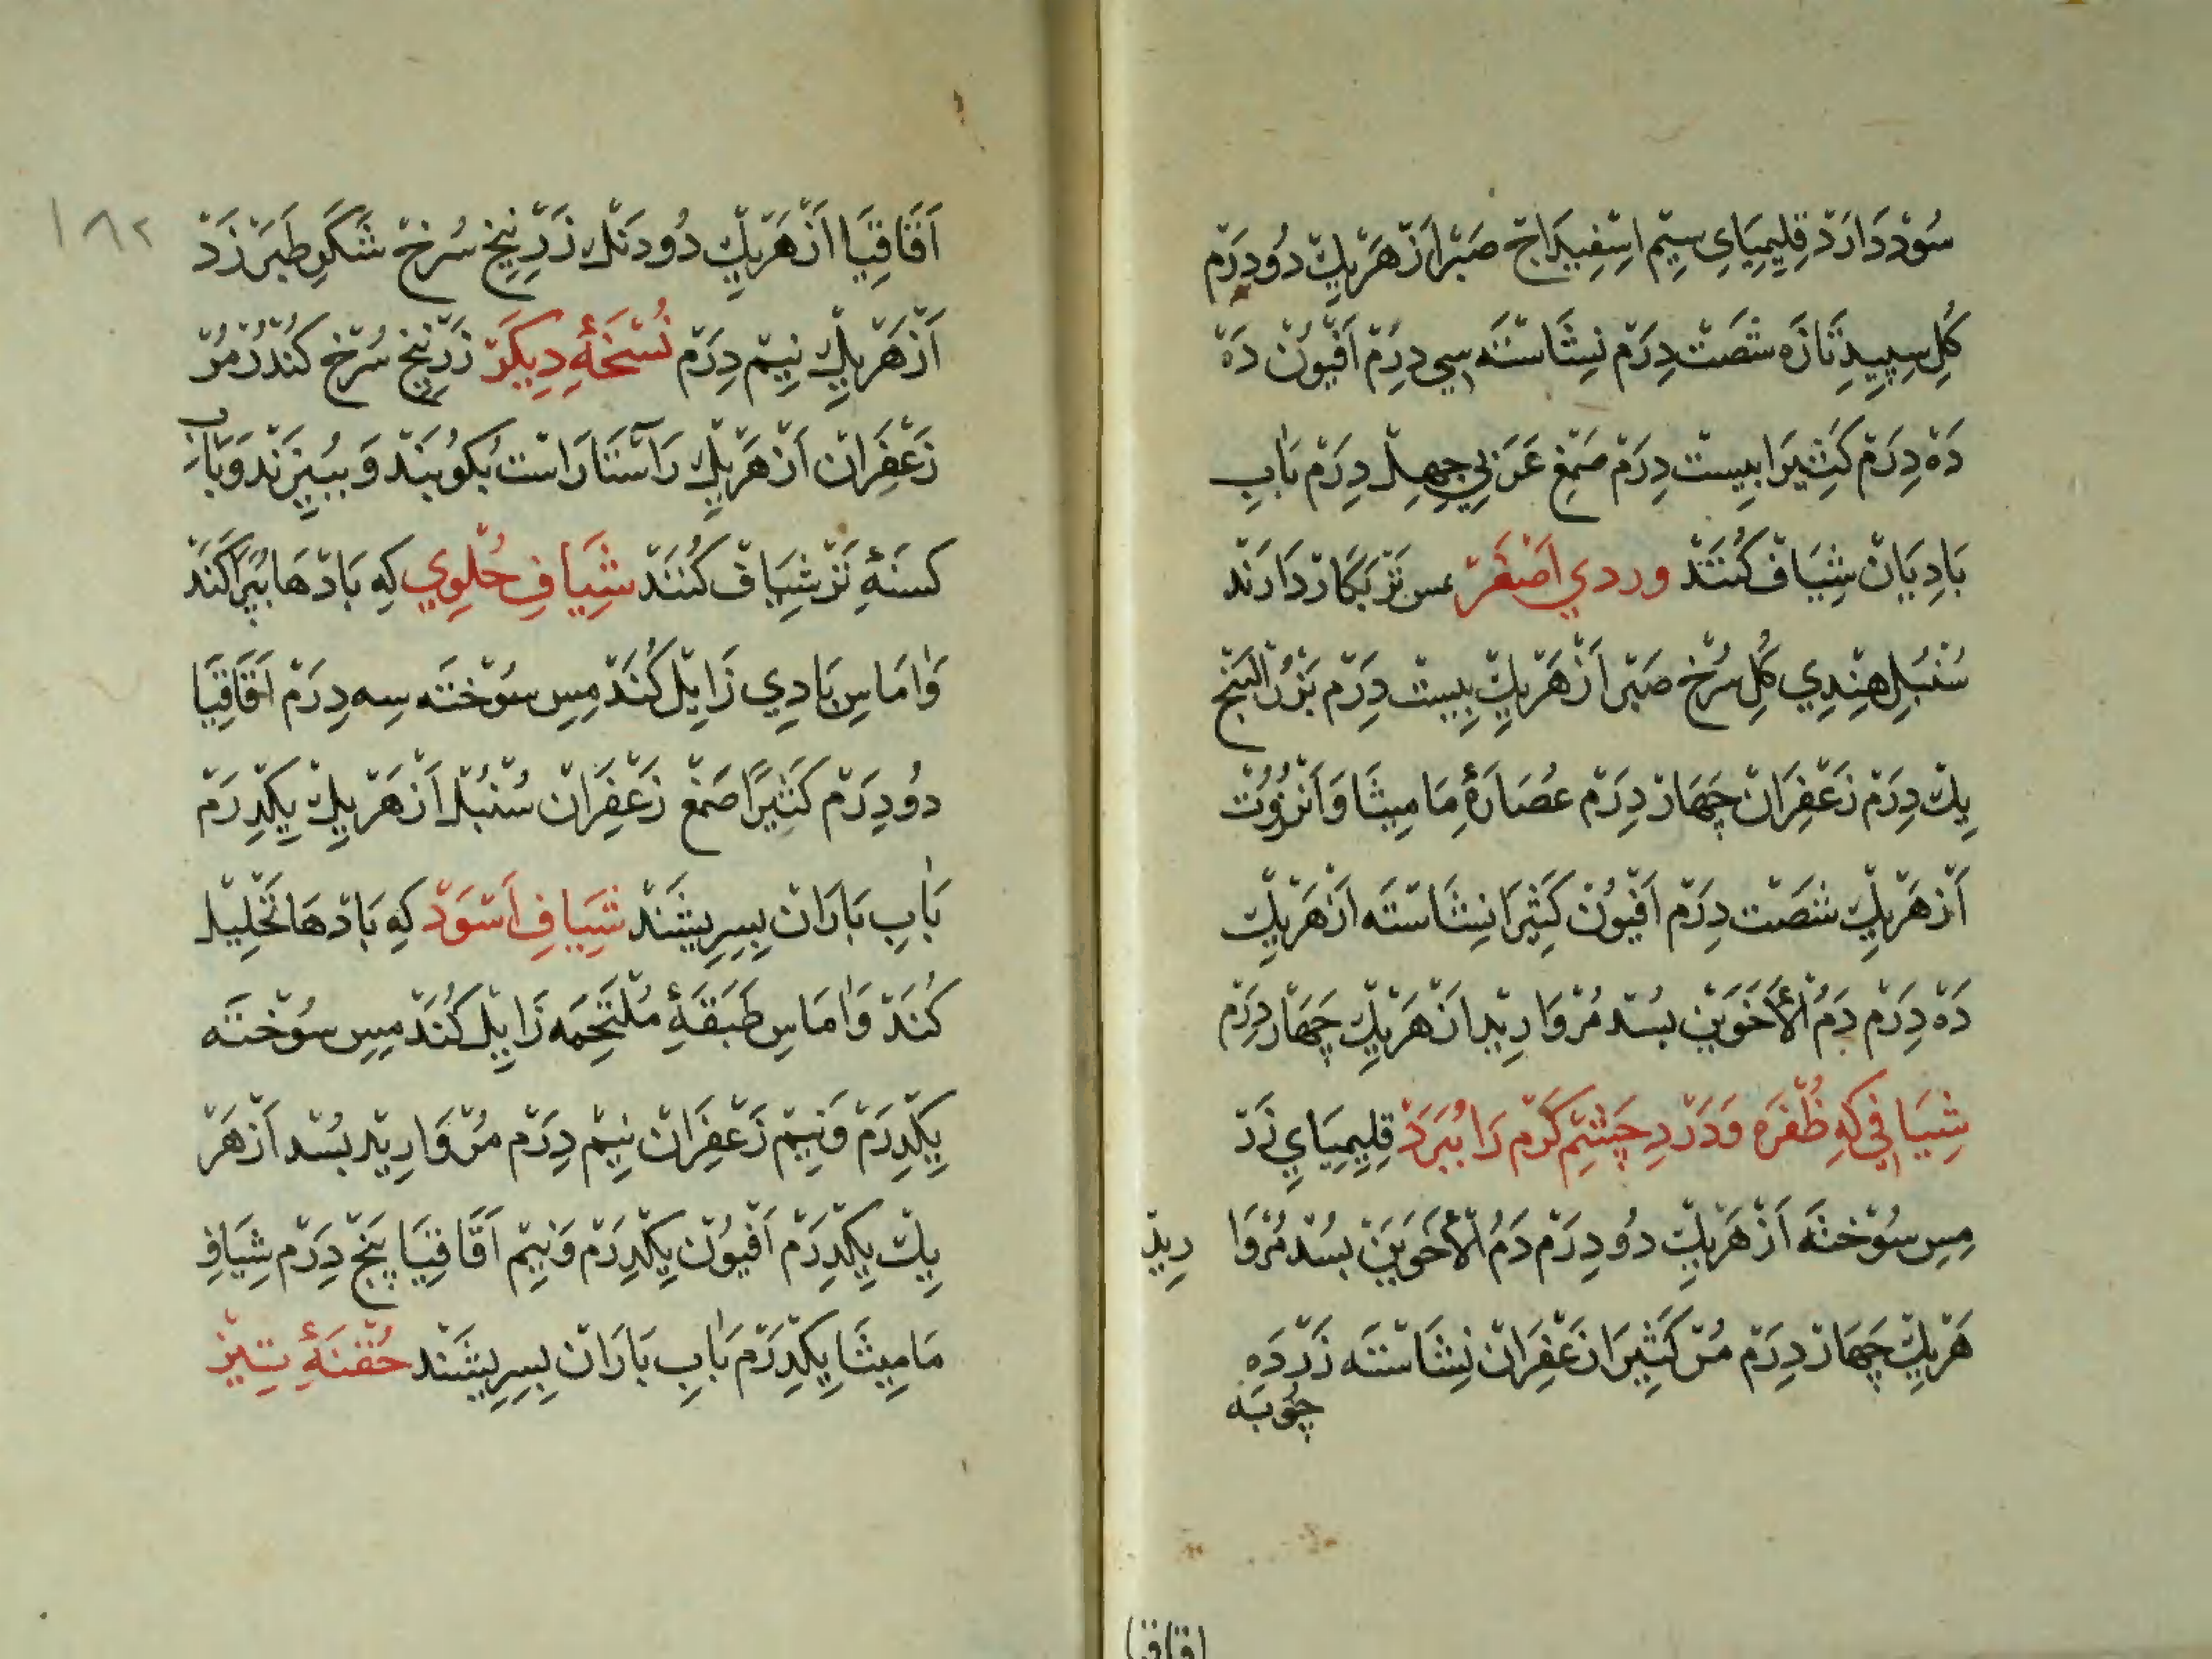 سُوْد دَارَدْ قِلِيمِيَايِ سِيْم اِسْفِيدَاجْ صَبْر اَزْ هَرْيِكْ دُو دِرَمْ
گُلِ سِپِيدِ تَازَه شَصَتْ دِرَمْ نِشَاسْتَه سِي دِرَمْ اَفْيُوْن دَهْ
دَهْ دِرَمْ كَثِيْرَا بِيسْت دِرَمْ صَمْغِ عَرَبِي چِهِلْ دِرَمْ بَابِ
بَادِيَانْ شِيَافْ كُنَنَدْ وردي اَصْفَرْ عس تَرْ بَكَارْ دَارَنْد
سُنْبُلِ هِنْدِي گُلِ سُرْخ صَبْر اَزْ هَرْيِكْ بِيسْت دِرَمْ بَزْرُ الْبَنْجْ
يِكْ دِرَمْ زَعْفِرَانْ چَهَارْ دِرَمْ عُصَارَهٔ مَامِيثَا وَاَنْزُرُوْتْ
اَزْ هَرْيِكْ شَصَتْ دِرَمْ اَفْيُوْن كَثِيْرَا نِشَاسْتَه اَزْ هَرْيِكْ
دَهْ دِرَمْ دَمُ الْاَخَوَيْن بسُد مُرْوَارِيْد اَزْ هَرْيِكْ چَهَارْ دِرَمْ
شِيَافِي كِهِ ظُفْرَه وَدَرْدِ چَشْمِ گَرْم رَا بُبَرَدْ قِلِيمِيَايِ زَرْ
مِسِ سُوْخْتَه اَزْ هَرْيِكْ دُو دِرَمْ دَمُ الْاَخَوَيْن بسُد مُرْوَا رِيدْ
هَرْيِكْ چَهَارْ دِرَمْ مُرْ كَثِيْرَا زَعْفِرَانْ نِشَاسْتَه زَرْدَه
چُوبَه
اقاقيا
١٨٢
اَقَاقِيَا اَزْ هَرْيِكْ دُو دَنْك زَرْنِيخِ سُرْخْ شَكَرِ طَبَرْزَدْ
اَزْ هَرْيِكْ نِيْم دِرَمْ نُسْخَهٔ دِيكَرْ زَرْنِيخِ سُرْخ كُنْدُرْ مُرْ
زَعْفِرَانْ اَزْ هَرْيِكْ رَاسْتَارَاسْت بُكُوبَنْد وَ بِبِيزَنْد وَبَابِ
كسنهٔ تَرْ شِيَافْ كُنَنَدْ شِيَافِ حُلْوِي كِه بَادْهَا بُپَرَاگَنَدْ
وَامَاسِ بَادِي زَايِلْ كُنَدْ مِسِ سُوْخْتَه سِه دِرَمْ اَقَاقِيَا
دُو دِرَمْ كَثِيْرًا صَمْغ زَعْفِرَانْ سُنْبُلْ اَزْ هَرْيِكْ يِكْدِرَمْ
بَابِ بَارَانْ بِسِرِيشَنْد شِيَافِ اَسْوَدْ كِه بَادْهَا تَحْلِيْل
كُنَدْ وَامَاسِ طَبَقَهٔ مُلْتَحِمَه زَايِلْ كُنَدْ مِسِ سُوْخْتَه
يِكْدِرَمْ وَنِيْم زَعْفِرَانْ نِيْم دِرَمْ مُرْوَارِيْد بسُد اَزْ هَرْ
يِكْ يِكْدِرَمْ اَفْيُوْن يِكْدِرَمْ وَنِيْم اَقَاقِيَا پَنْجْ دِرَمْ شِيَافِ
مَامِيثَا يِكْدِرَمْ بَابِ بَارَانْ بِسِرِيشَنْد حُقْنَهٔ تِيزْ